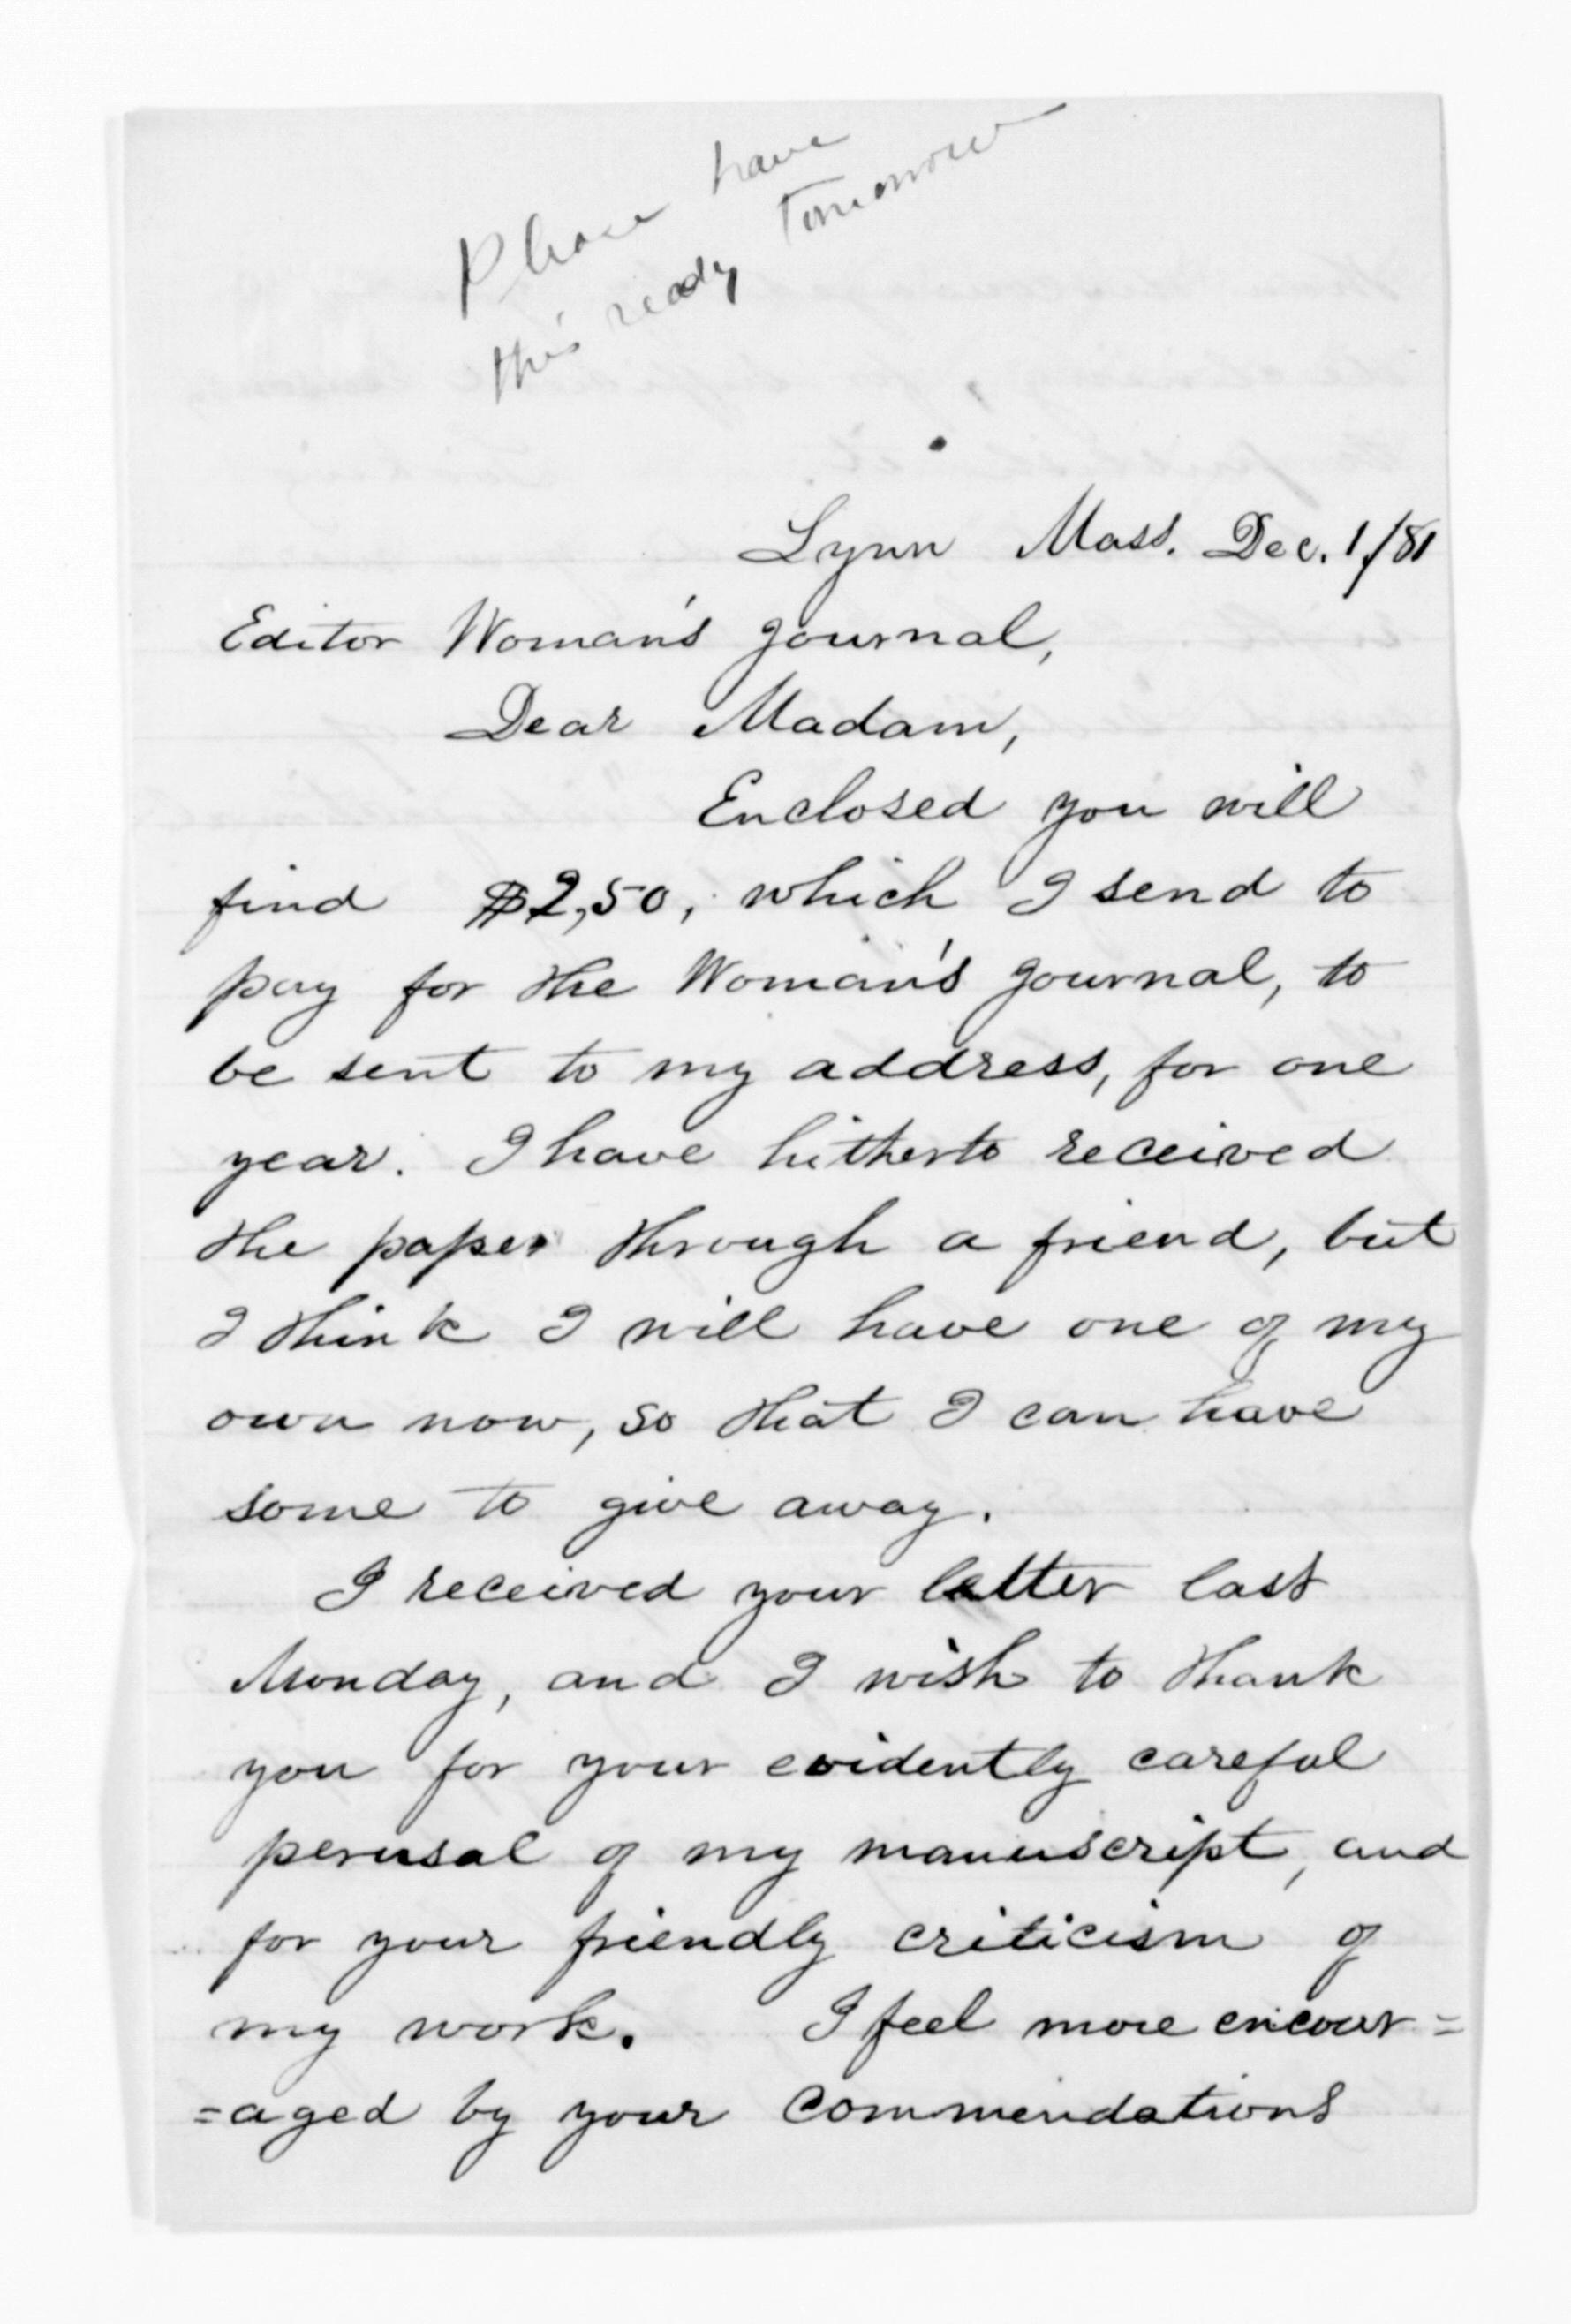 Please have
this ready tomorrow
Lynn Mass. Dec. 1/81
Editor Woman's Journal,
Dear Madam,
Enclosed you will
find $2,50, which I send to
pay for the Woman's Journal, to
be sent to my address, for one
year. I have hitherto received
the paper through a friend, but
I think I will have one of my
own now, so that I can have
some to give away.
I received your letter last
Monday, and I wish to thank
you for your evidently careful
perusal of my manuscript, and
for your friendly criticism of
my work. I feel more encour=
=aged by your commendations